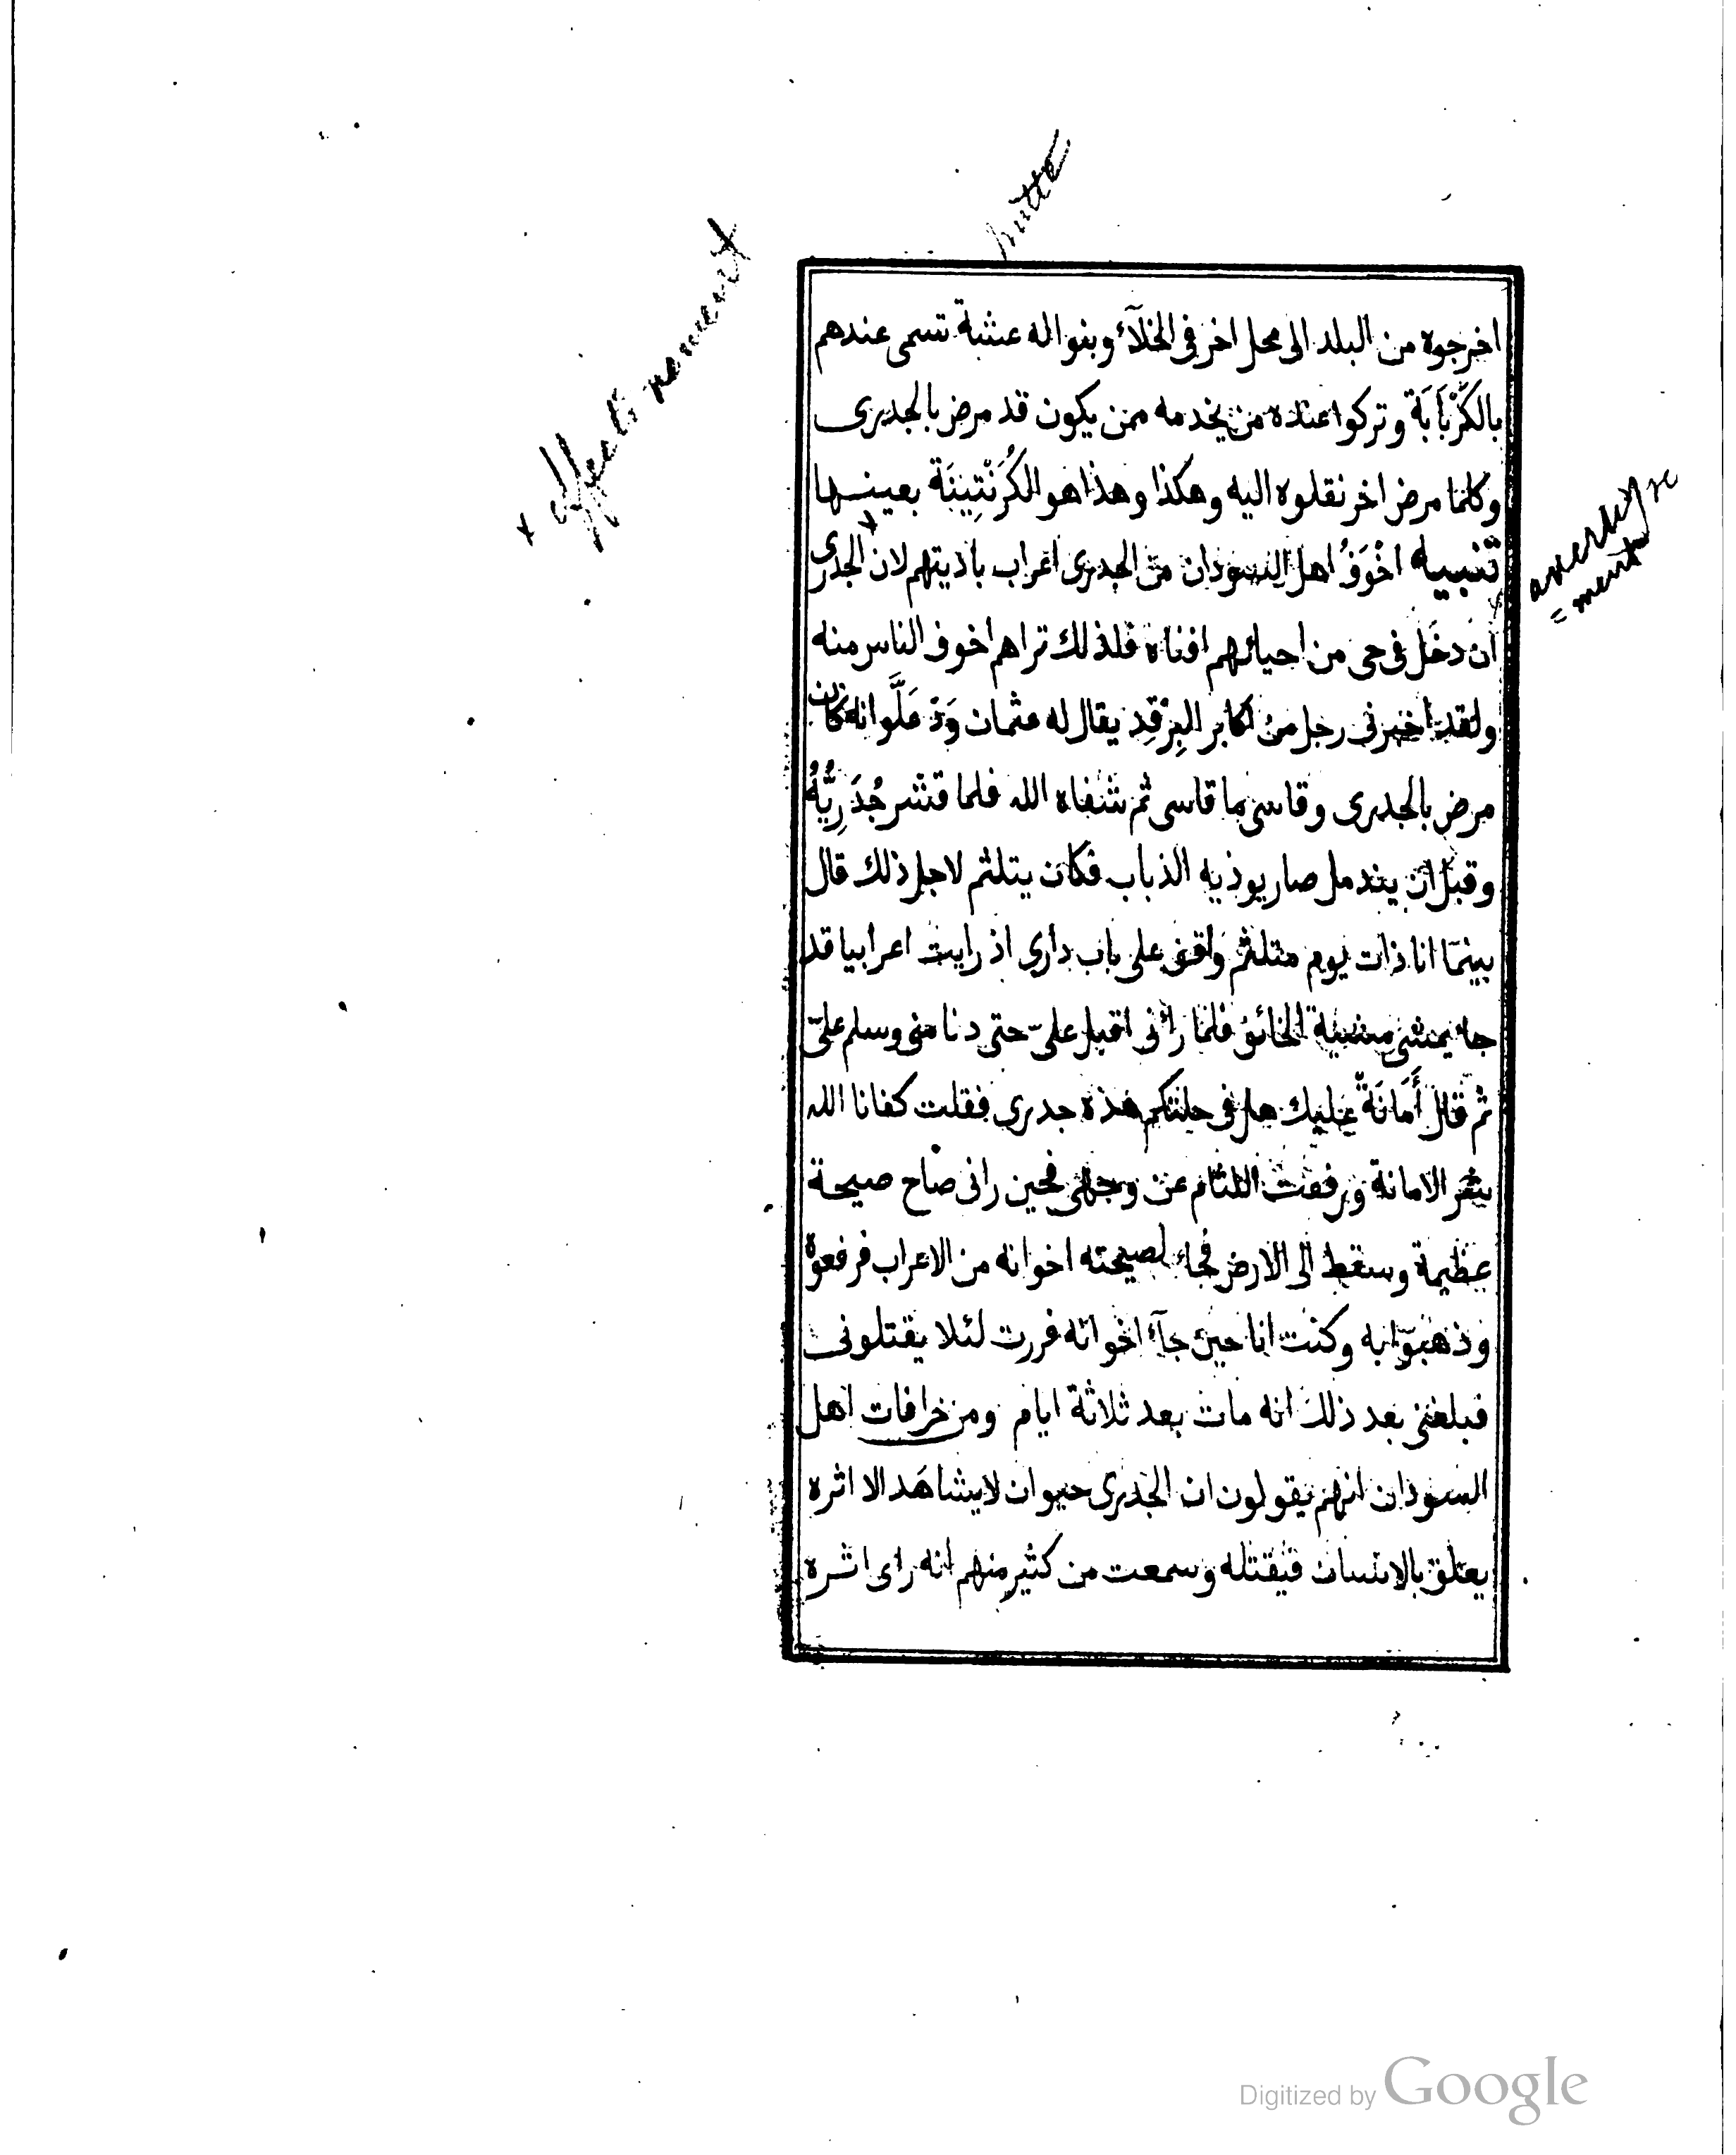 hutte
+ effectivement
اخرجوه من البلد الى محل اخر فى الخلآء وبنوا له عشة تسمى عندهم
بالكَرْبَابَة وتركوا عنده من يخدمه ممن يكون قد مرض بالجدرى
وكلما مرض اخر نقلوه اليه وهكذا وهذا هو الكُرَنْتِينَة بعينها
تنبيه اخْوَفُ اهل السودان من الجدرى اعراب باديتهم لان الجدرى
avertisse
=ment
ان دخَل فى حى من احيائهم افناه فلذلك تراهم اخوف الناس منه
ولقد اخبرنى رجل من اكابر البِرْقِد يقال له عثمان وَدْ عَلَّو انه كان
مرض بالجدرى وقاسى ما قاسى ثم شفاه الله فلما قشر جُدَرِيُّهُ
وقبل ان يندمل صار يوذيه الذباب فكان يتلثم لاجل ذلك قال
بينما انا ذات يوم متلثم واقف على باب دارى اذ رايت اعرابيا قد
جا يمشى مشية الخائف فلما رآنى اقبل علىّ حتى دنا منى وسلم علىّ
ثم قال أَمَانَةْ عليك هل فى حلتكم هذه جدرى فقلت كفانا الله
بشر الامانة ورفعت اللثام عن وجهى فحين رانى صاح صيحة
عظيمة وسقط الى الارض فجاء لصيحته اخوانه من الاعراب فرفعوه
وذهبوا به وكنت انا حين جآء اخوانه فررت لئلا يقتلونى
فبلغنى بعد ذلك انه مات بعد ثلاثة ايام ومن خرافات اهل
السودان انهم يقولون ان الجدرى حيوان لا يشاهَد الا اثره
يعلق بالانسان فيقتله وسمعت من كثير منهم انه راى اثره
Digitized by Google